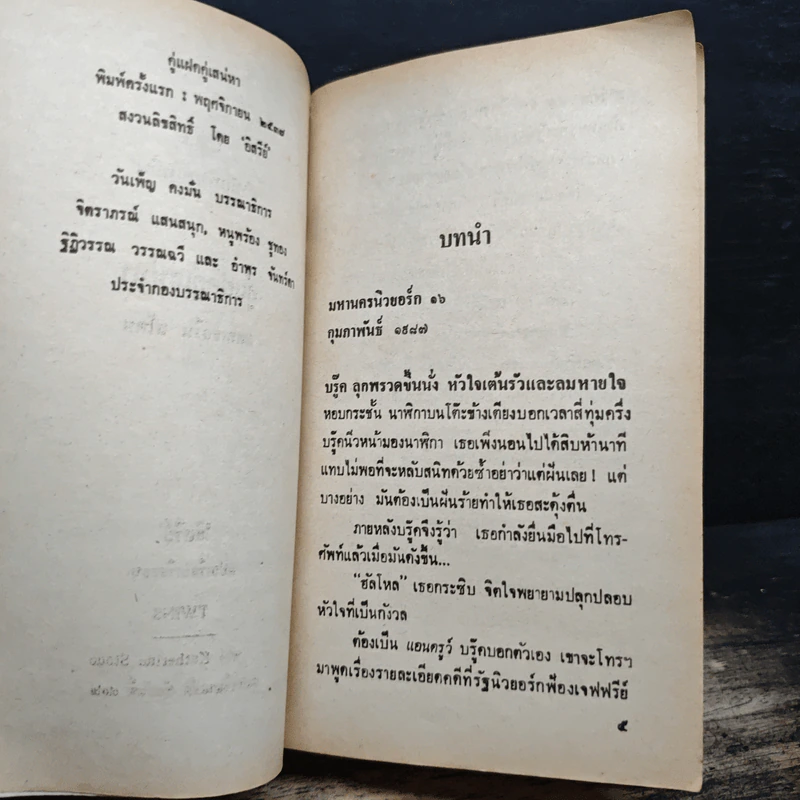 คู่แฝดคู่เสน่หา
พิมพ์ครั้งแรก : พฤศจิกายน ๒๕๓๗
สงวนลิขสิทธิ์ โดย 'อิสรีย์'
วันเพ็ญ คงมั่น บรรณาธิการ
จิตราภรณ์ แสนสนุก, หนูพร้อง ชูทอง
ฐิฏิวรรณ วรรณฉวี และ อำพร จันทร์ตา
ประจำกองบรรณาธิการ
บทนำ
มหานครนิวยอร์ก ๑๖
กุมภาพันธ์ ๑๙๘๗
บรู๊ค ลุกพรวดขึ้นนั่ง หัวใจเต้นรัวและลมหายใจ
หอบกระชั้น นาฬิกาบนโต๊ะข้างเตียงบอกเวลาสี่ทุ่มครึ่ง
บรู๊คนิ่วหน้ามองนาฬิกา เธอเพิ่งนอนไปได้สิบห้านาที
แทบไม่พอที่จะหลับสนิทด้วยซ้ำอย่าว่าแต่ฝันเลย ! แต่
บางอย่าง มันต้องเป็นฝันร้ายทำให้เธอสะดุ้งตื่น
ภายหลังบรู๊คจึงรู้ว่า เธอกำลังยื่นมือไปที่โทร-
ศัพท์แล้วเมื่อมันดังขึ้น...
"ฮัลโหล" เธอกระซิบ จิตใจพยายามปลุกปลอบ
หัวใจที่เป็นกังวล
ต้องเป็น แอนดรูว์ บรู๊คบอกตัวเอง เขาจะโทรฯ
มาพูดเรื่องรายละเอียดคดีที่รัฐนิวยอร์กฟ้องเจฟฟรีย์
๕